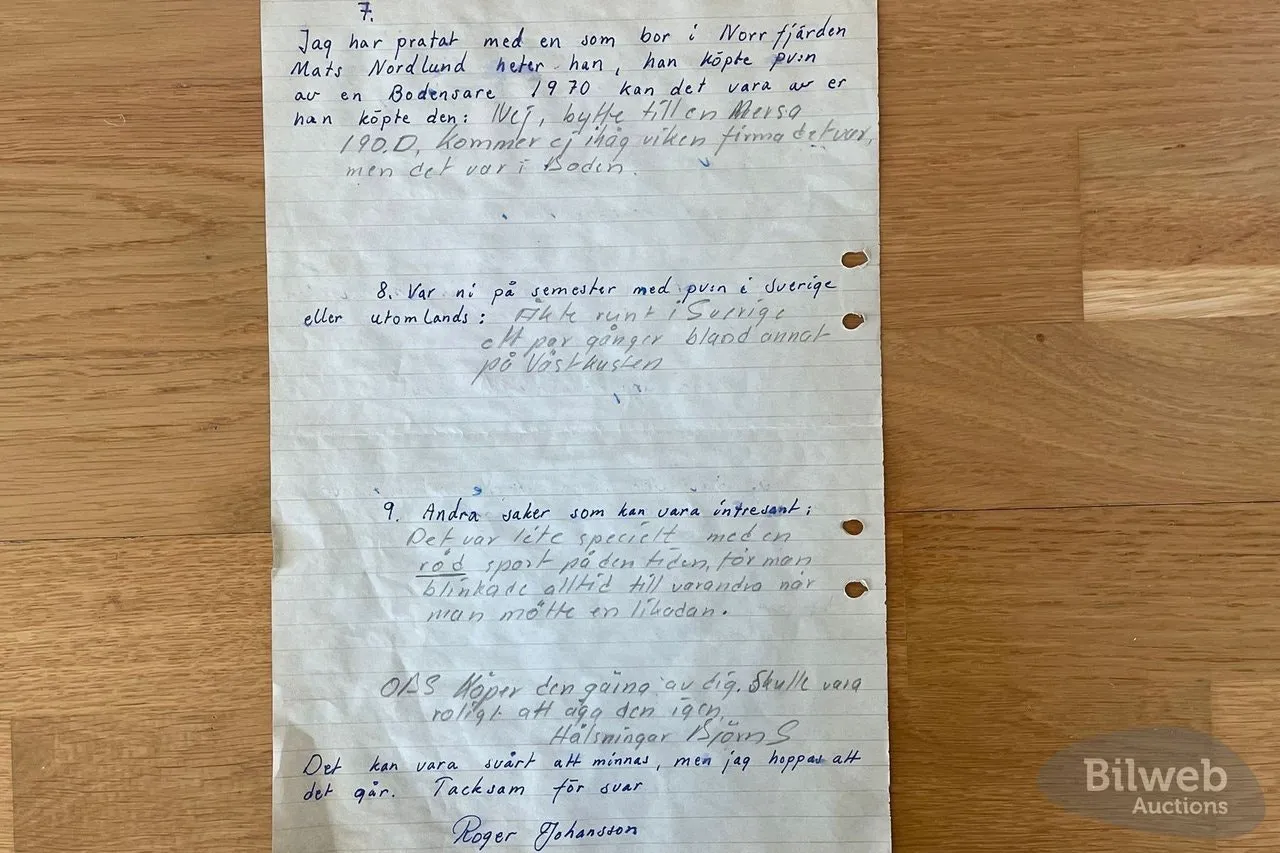 7.
Jag har pratat med en som bor i Norrfjärden
Mats Nordlund heter han, han köpte pv:n
av en Bodensare 1970 kan det vara av er
han köpte den: Nej, bytte till en Mersa
190.D, Kommer ej ihåg viken firma det var,
men det var i Boden.
8. Var ni på semester med pv:n i Sverige
eller utomlands: Åkte runt i Sverige
ett par gånger bland annat
på Västkusten
9. Andra saker som kan vara intresant:
Det var lite speciellt med en
röd sport på den tiden, för man
blinkade alltid till varandra när
man mötte en likadan.
OBS Köper den gärna av dig. Skulle vara
roligt att äga den igen,
Hälsningar Björn S
Det kan vara svårt att minnas, men jag hoppas att
det går. Tacksam för svar
Roger Johansson
Bilweb
Auctions